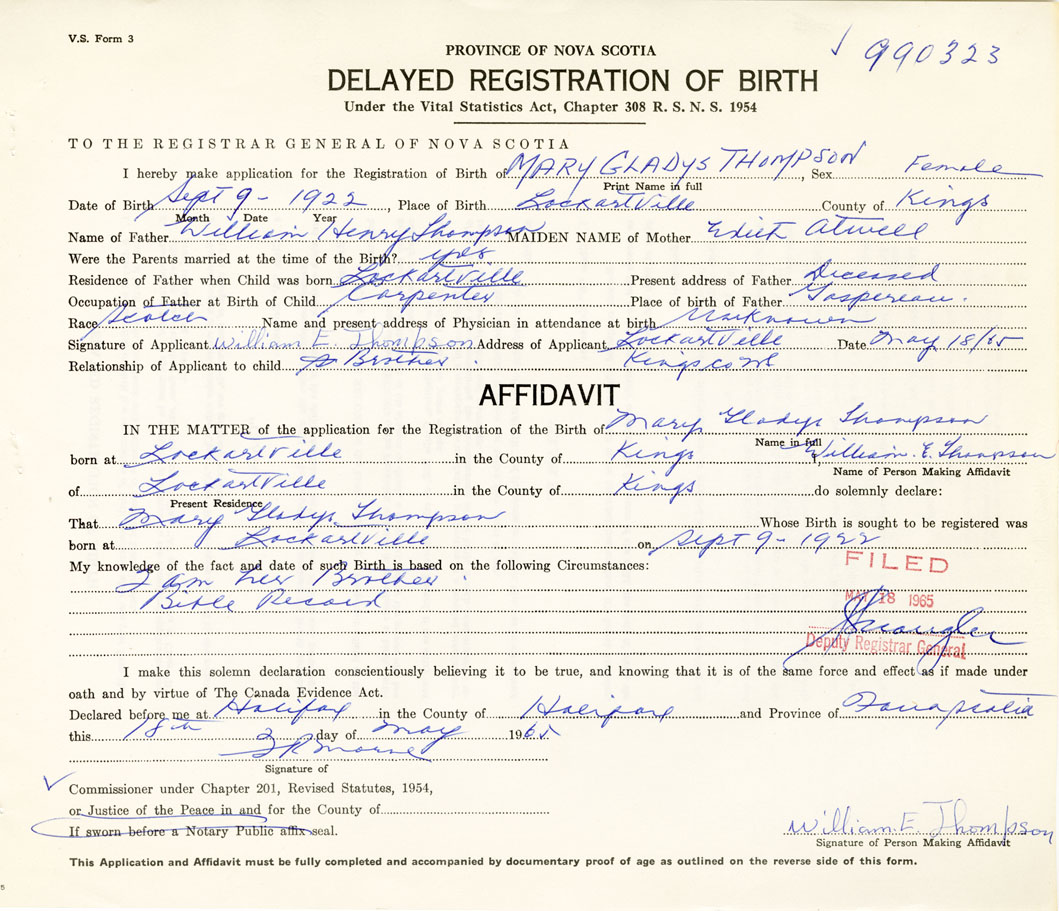 V.S. Form 3
990323
PROVINCE OF NOVA SCOTIA
DELAYED REGISTRATION OF BIRTH
Under the Vital Statistics Act, Chapter 308 R. S. N. S. 1954
TO THE REGISTRAR GENERAL OF NOVA SCOTIA
I hereby make application for the Registration of Birth of MARY GLADYS THOMPSON, Sex Female
Print Name in full
Date of Birth Sept 9 - 1922, Place of Birth LockartVille County of Kings
Month Date Year
Name of Father William Henry Thompson MAIDEN NAME of Mother Edith Atwell
Were the Parents married at the time of the Birth? yes
Residence of Father when Child was born LockartVille Present address of Father Diceased
Occupation of Father at Birth of Child Carpenter Place of birth of Father Gaspereau.
Race Scotch Name and present address of Physician in attendance at birth Unknown
Signature of Applicant William E Thompson Address of Applicant LockartVille Date May 18/65
Relationship of Applicant to child A Brother. Kings co
AFFIDAVIT
IN THE MATTER of the application for the Registration of the Birth of Mary Gladys Thompson
Name in full
born at LockartVille in the County of Kings I, William. E. Thompson
Name of Person Making Affidavit
of LockartVille in the County of Kings do solemnly declare:
Present Residence
That Mary Gladys Thompson Whose Birth is sought to be registered was
born at LockartVille on Sept 9 - 1922
My knowledge of the fact and date of such Birth is based on the following Circumstances:
I am her Brother.
Bible Record
FILED
MAY 18 1965
Deputy Registrar General
I make this solemn declaration conscientiously believing it to be true, and knowing that it is of the same force and effect as if made under
oath and by virtue of The Canada Evidence Act.
Declared before me at Halifax in the County of Halifax and Province of Nova Scotia
this 18th day of May 1965
Signature of
Commissioner under Chapter 201, Revised Statutes, 1954,
or Justice of the Peace in and for the County of
If sworn before a Notary Public affix seal.
William. E. Thompson
Signature of Person Making Affidavit
This Application and Affidavit must be fully completed and accompanied by documentary proof of age as outlined on the reverse side of this form.
5